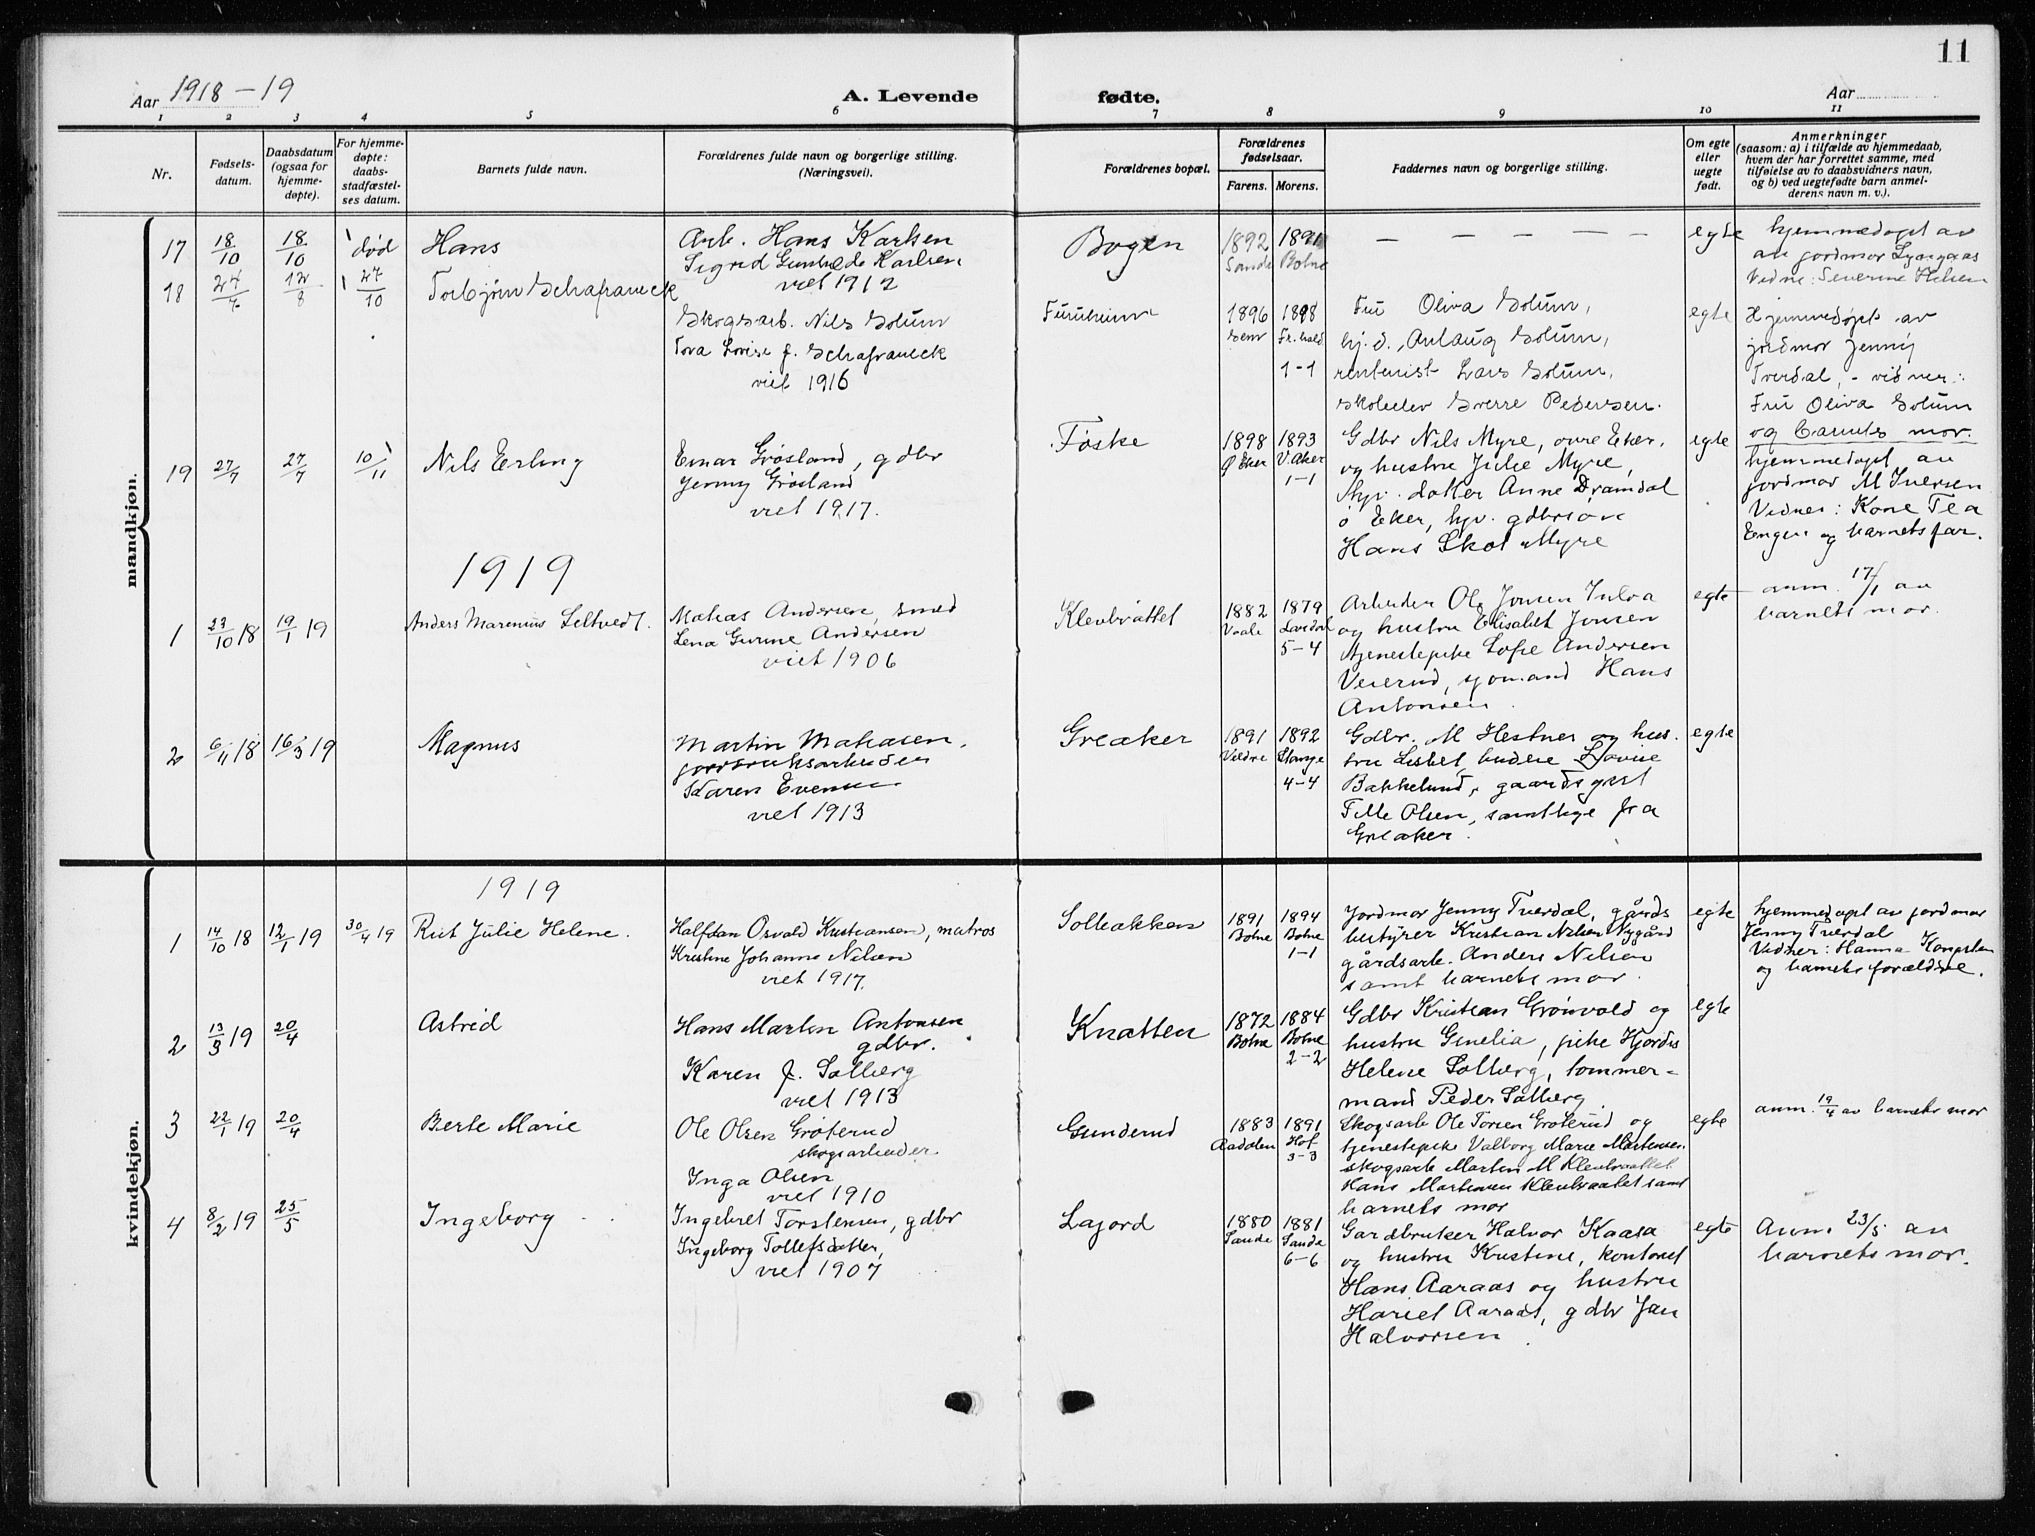 11
Aar 1918-19
A. Levende fødte.
Aar
1 2 3 4 5 6 7 8 9 10 11
Nr.
Fødsels-
datum.
Daabsdatum
(ogsaa for
hjemme-
døpte).
For hjemme-
døpte:
daabs-
stadfæstel-
ses datum.
Barnets fulde navn.
Forældrenes fulde navn og borgerlige stilling.
(Næringsvei).
Forældrenes bopæl.
Forældrenes
fødselsaar.
Farens. Morens.
Faddernes navn og borgerlige stilling.
Om egte
eller
uegte
født.
Anmerkninger
(saasom: a) i tilfælde av hjemmedaab,
hvem der har forrettet samme, med
tilføielse av to daabsvidners navn,
og b) ved uegtefødte barn anmel-
derens navn m. v.).
mandkjøn.
17 18/10 18/10 død Hans
Arb. Hans Karlsen
Sigrid Karlsen
viet 1912
Bogen
1892 1891
Sande Botne
— — — — — —
egte
hjemmedøpt av
jordmor
Vidne: Severine
18 12/8 27/10 Torbjørn Schafraneck
Skogsarb. Nils Solum
Tora Lovise f. Schafraneck
viet 1916
Furuheim
1896 1898
Fr.hald
1-1
Fru Oliva Solum,
hj.d., Anlaug Solum,
rentenist Lars Solum,
skoleelev Sverre Pedersen.
egte
Hjemmedøpt av
jordmor Jenny
Tverdal, - vidner:
Fru Oliva Solum
og barnets mor.
19 27/7 27/7 10/11 Nils Erling
Einar Grøsland, gdbr
Jenny Grøsland
viet 1917.
Føske
1898 1893
Ø Eker V. Aker
1-1
Gdbr Nils Myre, øvre Eker,
og hustru Julie Myre,
hjv. datter Anne Dramdal
ø Eker, hjv. gdbrsøn
Hans Skot Myre
egte
hjemmedøpt av
jordmor M Iversen
Vidner: Kone Tea
Engen og barnets far.
1919
1 23/10 18 19/1 19 Anders Marenius Seltvedt.
Matias Andersen, smed
Lena Gurine Andersen
viet 1906
Klevbråttet
1882 1879
Vaale
5-4
Arbeider Ole Jonsen Tulva
og hustru Elisabet Jonsen
tjenestepike Sofie Andersen
Veierud, sjømand Hans
Antonsen.
egte
anm. 17/1 av
barnets mor.
2 6/11 18 16/3 19 Magnus
Martin Matiasen,
jordbruksarbeider
Karen Evensen
viet 1913
Greaker
1891 1892
Veldre Stange
4-4
Gdbr. M Hestner og hus-
tru Lisbet, budeie Lovise
Bakkelund, gaardsgut
Tille Olsen, samtlige fra
Greaker.
egte
kvindekjøn.
1919
1 14/10 18 12/1 19 30/4 19 Rut Julie Helene.
Halfdan Osvald Kristiansen, matros
Kristine Johanne Nilsen
viet 1917.
Solbakken
1891 1894
Botne Botne
1-1
Jordmor Jenny Tverdal, gårds
bestyrer Kristian Nilsen Nygård
gårdsarb. Anders Nilsen
samt barnets mor.
egte
hjemmedøpt av jordmor
Jenny Tverdal
Vidner: Hanna
og barnets forældre.
2 13/3 19 20/4 Astrid
Hans Martin Antonsen
gdbr.
Karen f. Solberg
viet 1913
Knatten
1872 1884
Botne Botne
2-2
Gdbr Kristian Grønvold og
hustru Ginelia, pike Hjørdis
Helene Solberg, tømmer-
mand Peder Solberg.
egte
3 22/1 19 20/4 Berte Marie
Ole Olsen Grøterud
skogsarbeider.
Inga Olsen
viet 1910
Gunderud
1883 1891
Aadalen Hof
3-3
Skogsarb Ole Torsen Grøterud og
tjenestepike Valborg Marie Martinsen
skogsarb Marten M Klevbraattet
Hans Martinsen Klevbraatet samt
barnets mor
egte
anm. 19/4 av barnets mor
4 8/2 19 25/5 Ingeborg
Ingebret Torstensen, gdbr
Ingeborg Tollefsdatter,
viet 1907
Lajord
1880 1881
Sande Sande
6-6
Gardbruker Halvor Kaasa
og hustru Kristine, kontorist
Hans Aaraas og hustru
Hariet Aaraas, gdbr Jan
Halvorsen.
egte
Anm. 23/5 av
barnets mor.